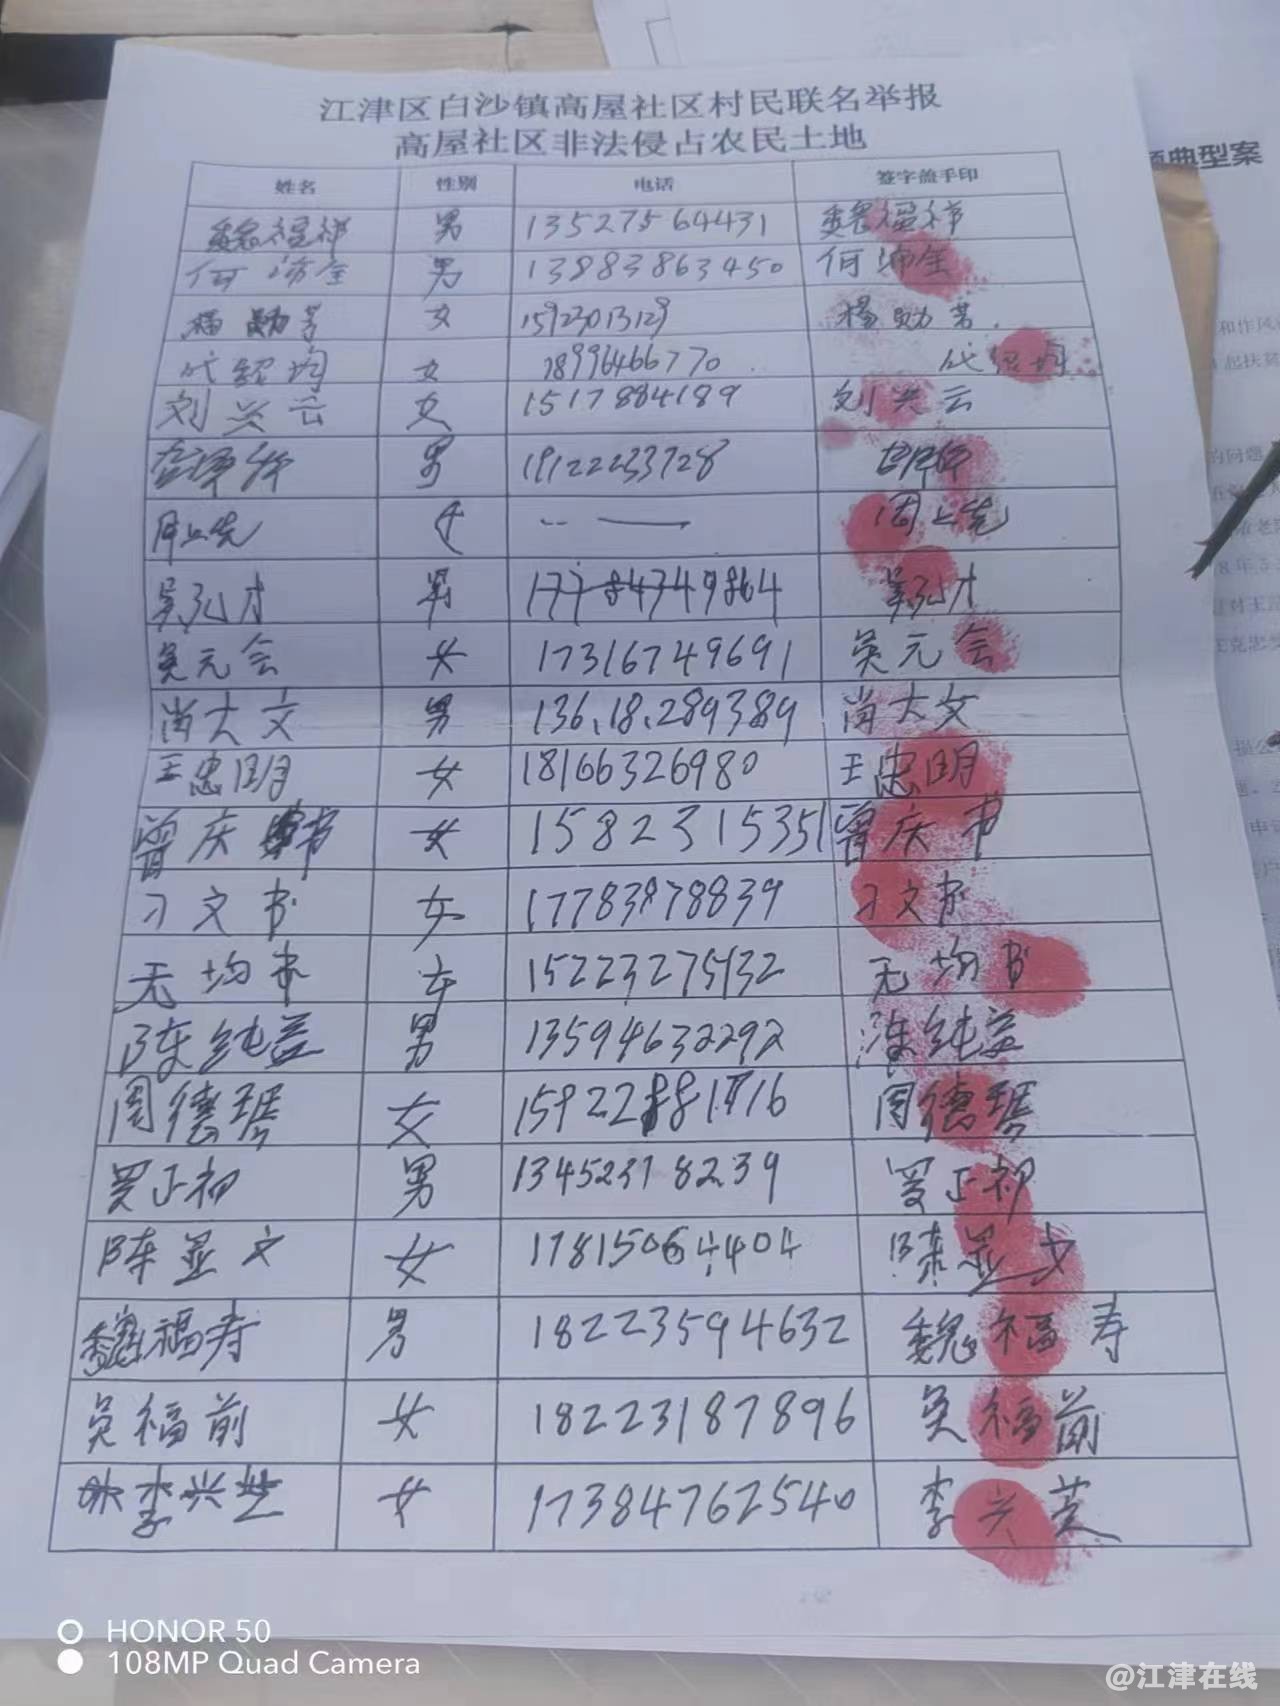 江津区白沙镇高屋社区村民联名举报
高屋社区非法侵占农民土地
典型案
姓名 性别 电话 签字盖手印
魏福祥 男 13527564431 魏福祥
何 全 男 13883863450 何 全
杨勋芳 女 15923013129 杨勋芳
代绍均 女 18996466770 代绍均
刘兴云 女 1517884189 刘兴云
男 19122233728
周上先 女 周上先
吴 才 男 17784749864 吴 才
吴元会 女 17316749691 吴元会
尚大文 男 136.18.289389 尚大文
王忠明 女 18166326980 王忠明
曾庆书 女 1582315351 曾庆书
刁文书 女 17783978839 刁文书
无均书 女 15223275132 无均书
陈纯益 男 13594632292 陈纯益
周德琴 女 15922881716 周德琴
罗正初 男 13452318239 罗正初
陈显文 女 17815064404 陈显文
魏福寿 男 18223594632 魏福寿
吴福前 女 18223187896 吴福前
李兴芝 女 17384762540 李兴芝
和作风
起扶贫
的问题
HONOR 50
108MP Quad Camera
@江津在线